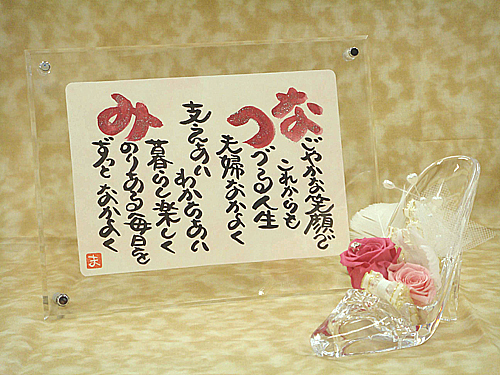 なごやかな笑顔で
これからも
つづる人生
夫婦なかよく
支えあい わかちあい
暮らし楽しく
みのりある毎日を
ずっと なかよく
ま